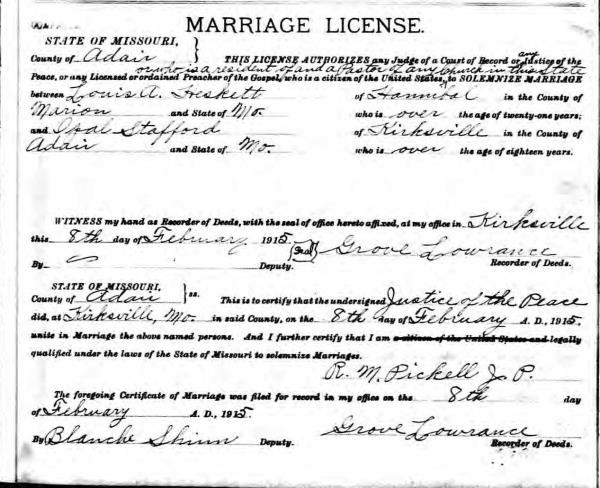 MARRIAGE LICENSE.
STATE OF MISSOURI,
County of Adair } THIS LICENSE AUTHORIZES any Judge of a Court of Record or any Justice of the
or who is a resident of and a Pastor of any Church in this State
Peace, or any Licensed or ordained Preacher of the Gospel, who is a citizen of the United States, to SOLEMNIZE MARRIAGE
between Louis A. Heskett of Hannibal in the County of
Marion and State of Mo. who is over the age of twenty-one years;
and Opal Stafford of Kirksville in the County of
Adair and State of Mo. who is over the age of eighteen years.
WITNESS my hand as Recorder of Deeds, with the seal of office hereto affixed, at my office in Kirksville
this 8th day of February 1915. (Seal) Grove Lowrance
By Deputy. Recorder of Deeds.
STATE OF MISSOURI,
County of Adair } ss. This is to certify that the undersigned Justice of the Peace
did, at Kirksville, Mo. in said County, on the 8th day of February A. D., 1915.
unite in Marriage the above named persons. And I further certify that I am a citizen of the United States and legally
qualified under the laws of the State of Missouri to solemnize Marriages.
R. M. Pickell J. P.
The foregoing Certificate of Marriage was filed for record in my office on the 8th day
of February A. D., 1915.
Grove Lowrance
By Blanche Shinn Deputy. Recorder of Deeds.